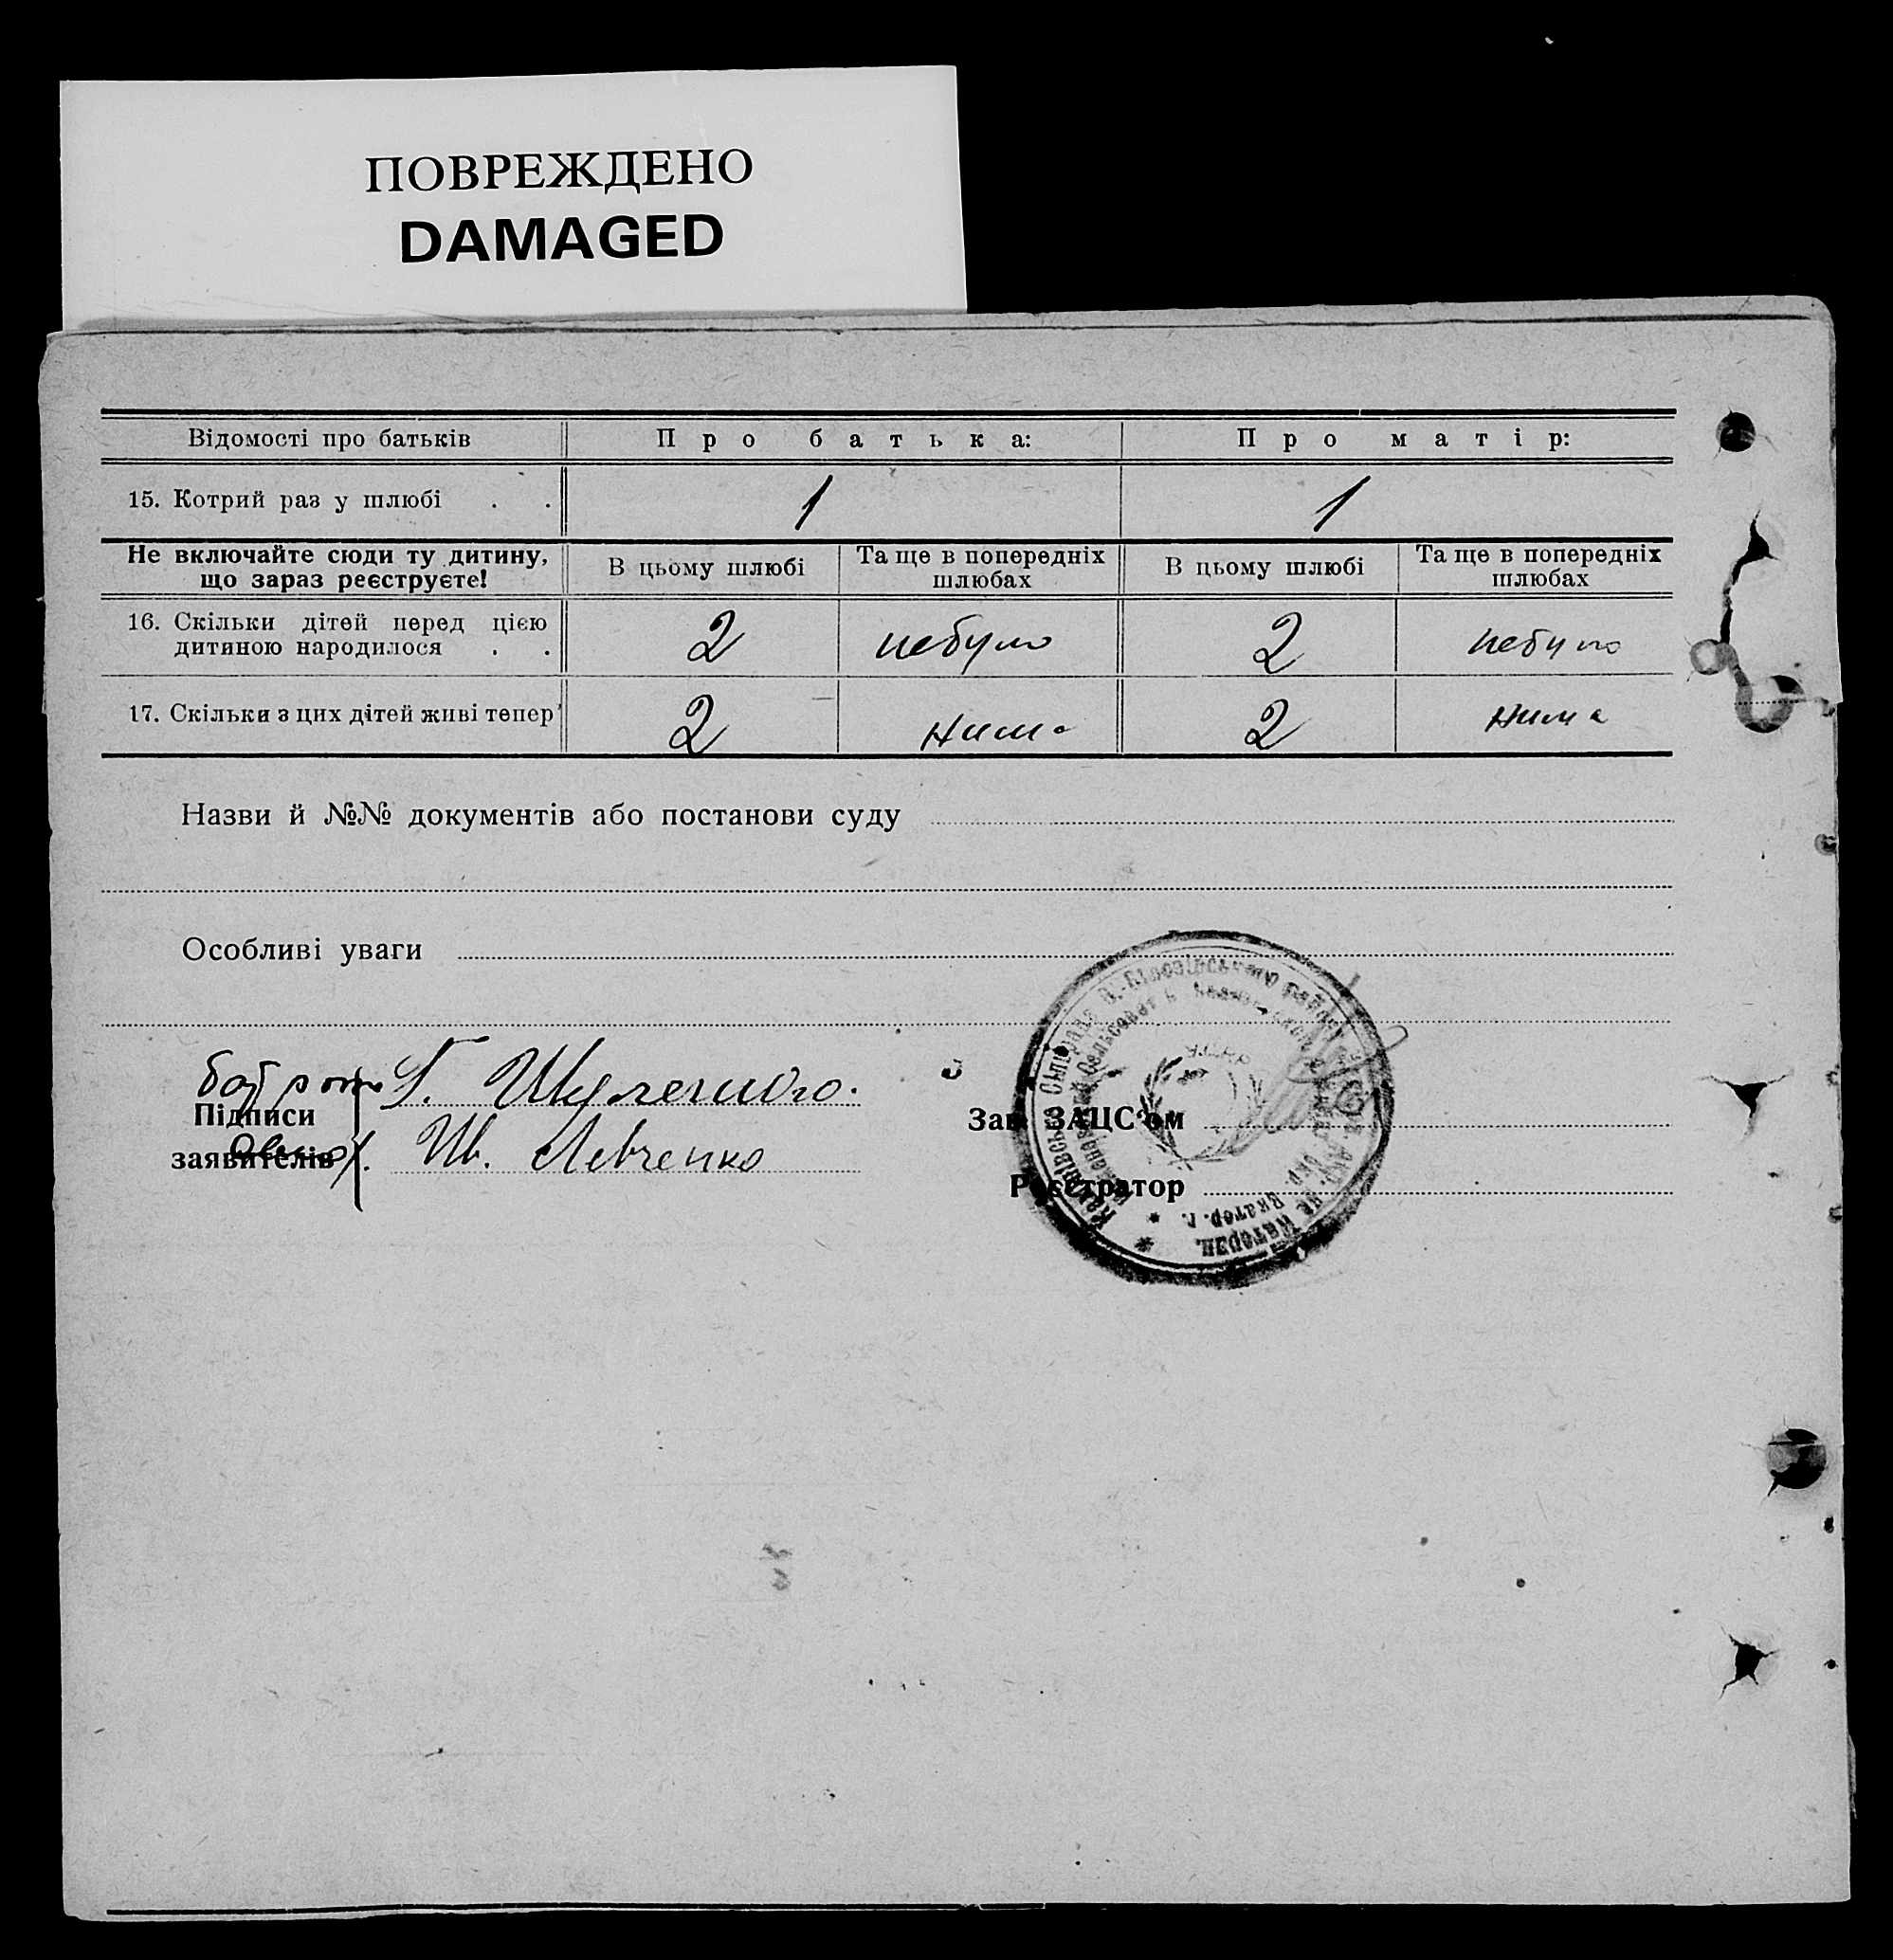 ПОВРЕЖДЕНО
DAMAGED
Відомості про батьків Про батька: Про матір:
15. Котрий раз у шлюбі . . 1 1
Не включайте сюди ту дитину, що зараз реєструєте! В цьому шлюбі Та ще в попередніх шлюбах В цьому шлюбі Та ще в попередніх шлюбах
16. Скільки дітей перед цією дитиною народилося . . 2 небуло 2 небуло
17. Скільки з цих дітей живі тепер 2 нима 2 нима
Назви й №№ документів або постанови суду
Особливі уваги
Г.
Підписи заявителів
Ив. Левченко
Зав ЗАЦС'ом
Реєстратор